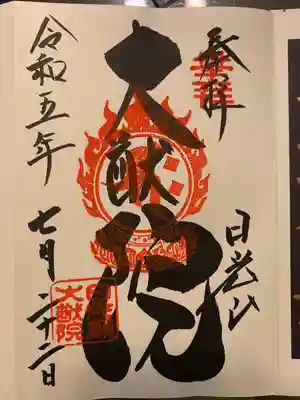 奉拝
日光山
大猷院
令和五年
七月二十二日
日光山
大猷院